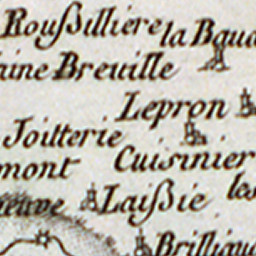 Roußilliere
la Baud
aine Breuille
Lepron
Joitterie
mont Cuisinier
les
neuve Laißie
Brilliau